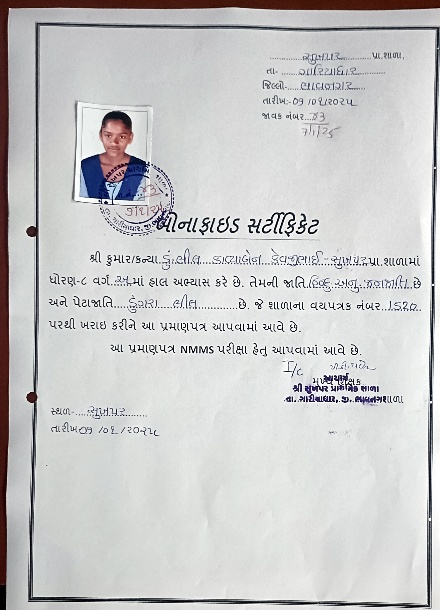 સુખપર પ્રા.શાળા,
તા- ગારિયાધાર
જિલ્લો- ભાવનગર
તારીખ:-૦૭ /૦૧/૨૦૨૫
જાવક નંબર 73
7/1/25
બોનાફાઇડ સર્ટીફિકેટ
શ્રી કુમાર/કન્યા કુ. ભીલ કાવ્યાબેન દેવજીભાઈ સુખપર પ્રા.શાળામાં
ધોરણ-૮ વર્ગ અ માં હાલ અભ્યાસ કરે છે. તેમની જાતિ હિન્દુ અનુ. જનજાતિ છે
અને પેટાજાતિ ડુંગરા ભીલ છે. જે શાળાના વયપત્રક નંબર 1520
પરથી ખરાઇ કરીને આ પ્રમાણપત્ર આપવામાં આવે છે.
આ પ્રમાણપત્ર NMMS પરીક્ષા હેતુ આપવામાં આવે છે.
I/c
આચાર્ય
મુખ્ય શિક્ષક
શ્રી સુખપર પ્રાથમિક શાળા
તા. ગારીયાધાર, જી. ભાવનગર શાળા
સ્થળ:- સુખપર
તારીખ ૦૭ /૦૧ /૨૦૨૫